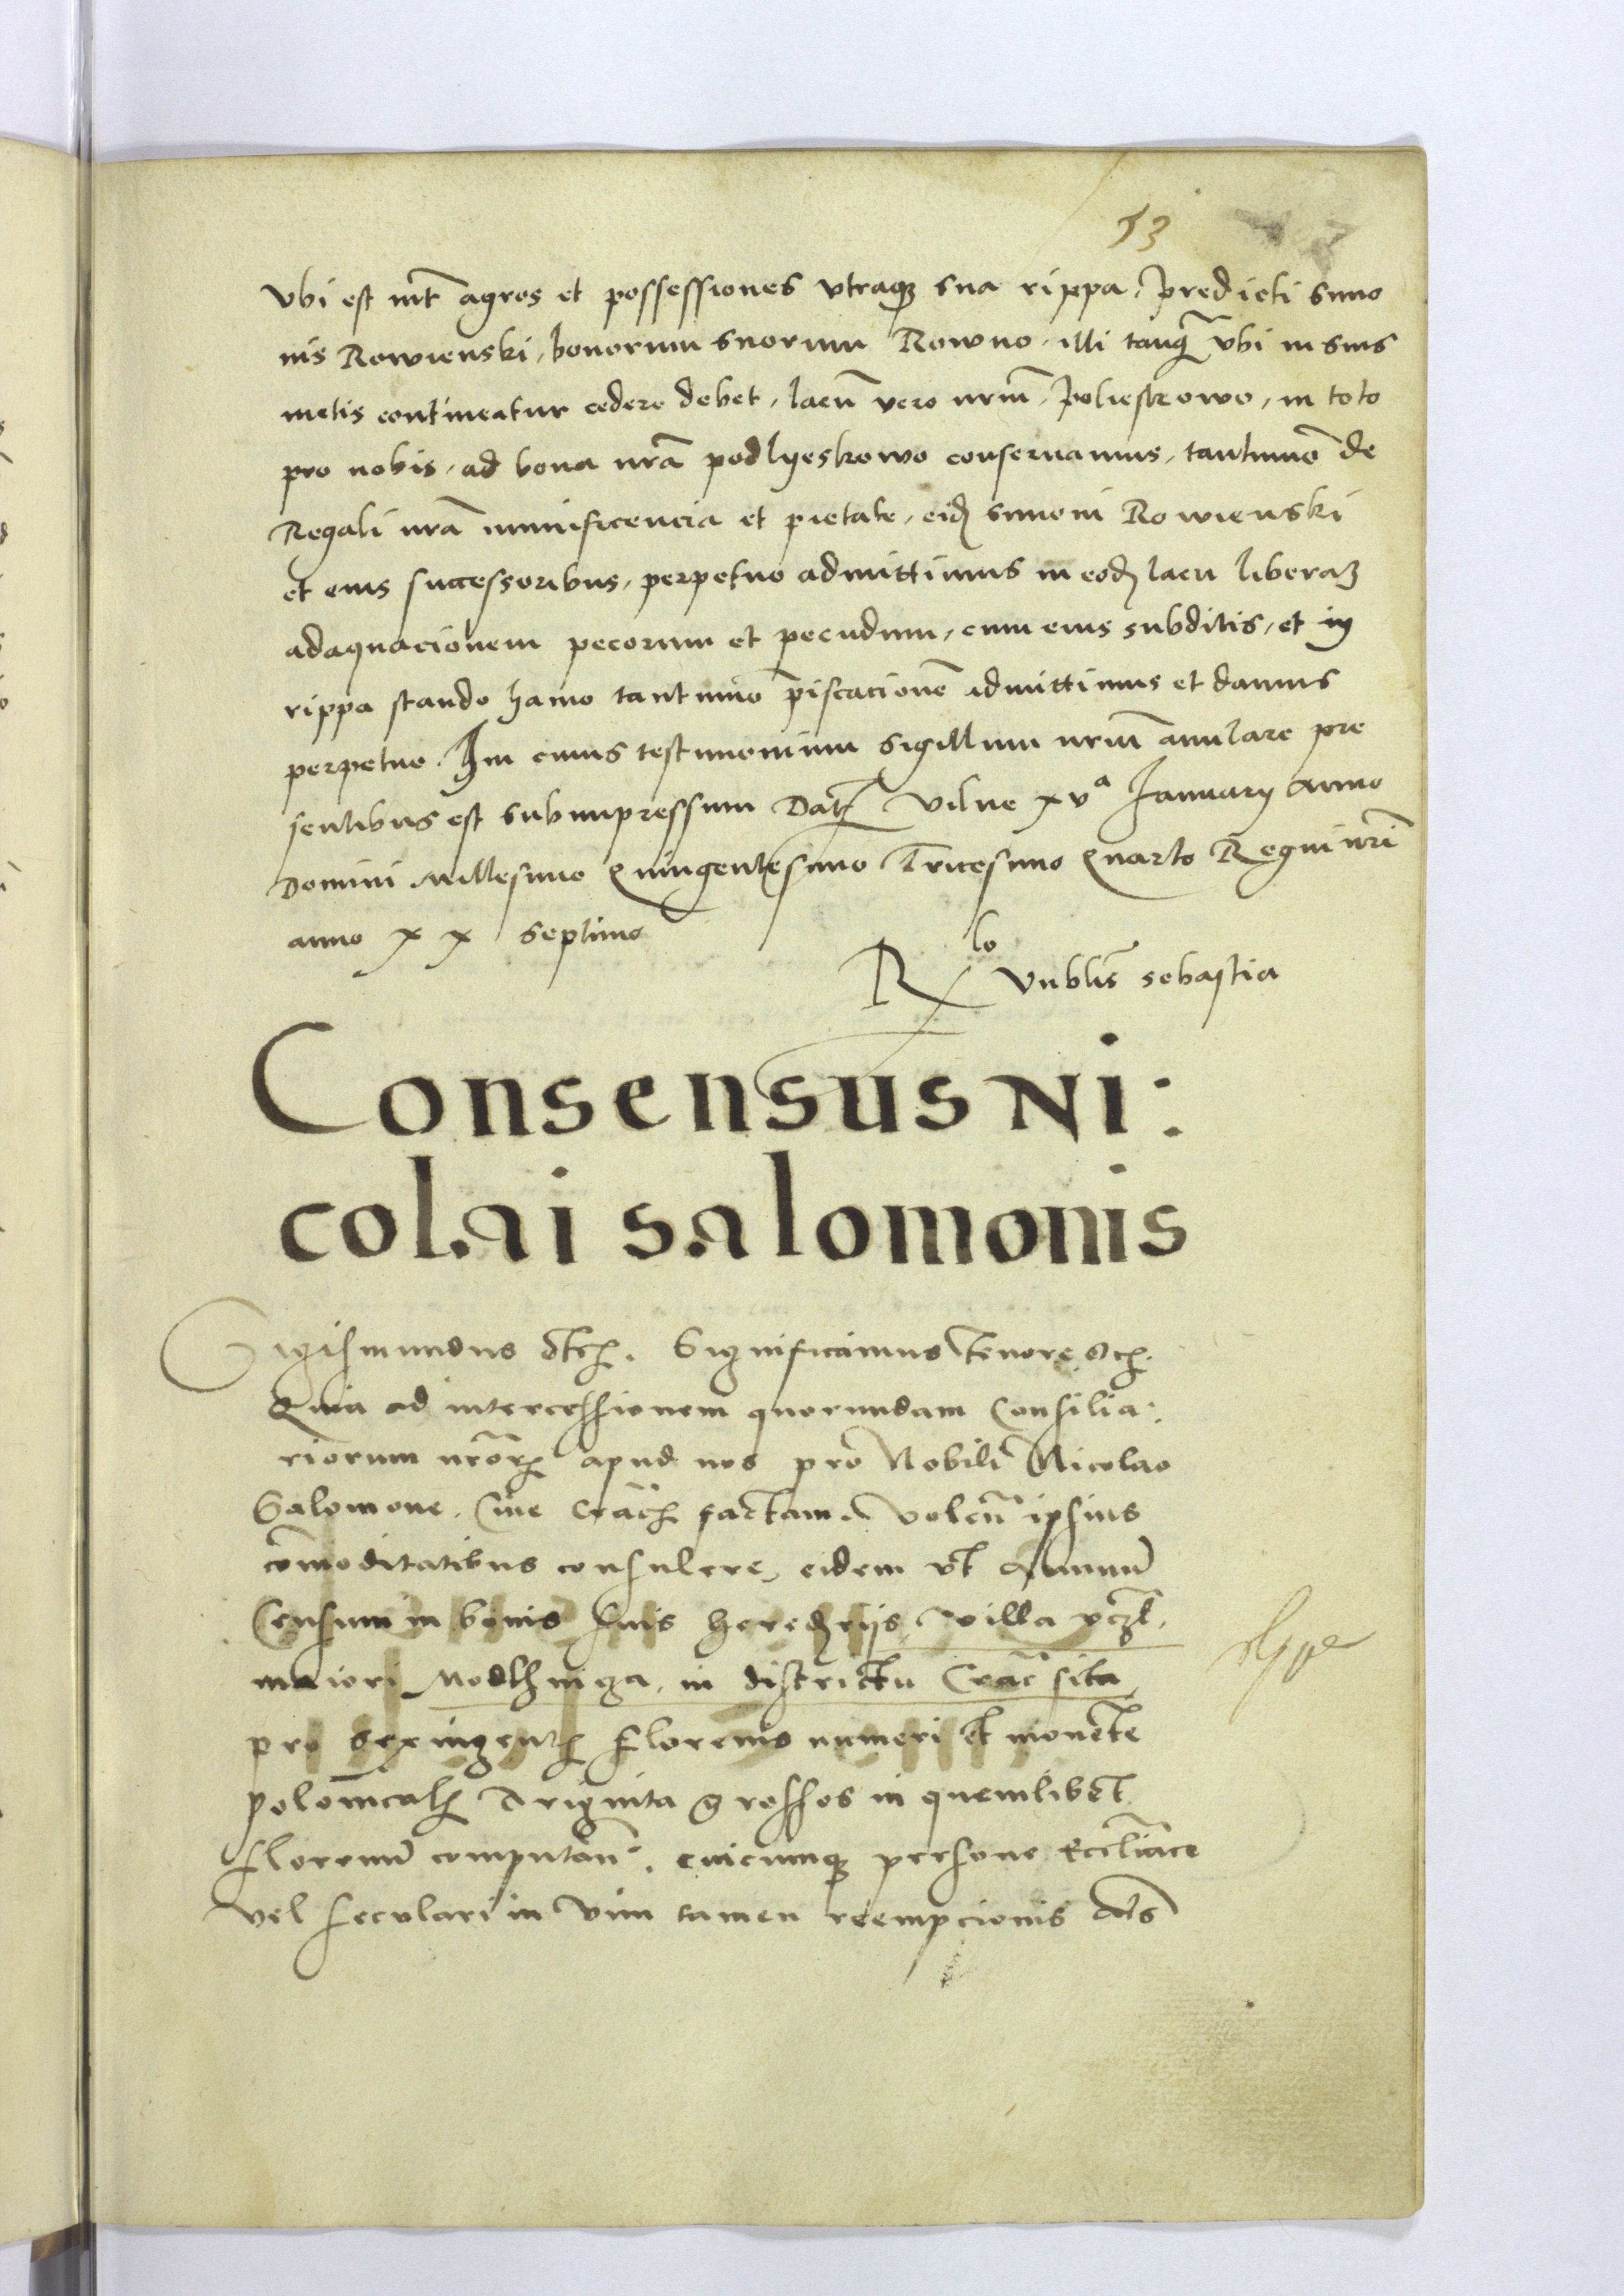 53
vbi est int̄ agros et possessiones vtraqꝫ sua rippa, predicti simo
nis Rowienski, bonorum suorum Rowno, illi tanqꝫ̄ vbi in suis
metis contineatur cedere debet, lacū vero nrm̄, poliestrowo, in toto
pro nobis, ad bona nrā podlyeskowo conseruamus, tantummō de
Regali nrā munificencia et pietate, eidꝫ simoni Rowienski
et eius successoribus, perpetuo admittimus in eodꝫ lacu liberaꝫ
adaquacionem pecorum et pecudum, cum eius subditis, et in
rippa stando hamo tantummo piscacionē admittimus et damus
perpetuo. In cuius testimonium sigillum nrm̄ anulare pre
sentibus est subimpressum Datꝫ Vilne xvᵃ January Anno
Domini Millesimo Quingentesimo Tricesimo Quarto Regni nrī
anno x x septimo
Rlo Vnblis̄ sebastia
Consensus Ni:
colai salomonis
Sigismundus Etcꝫ. Significamus tenore Ecꝫ.
Quia ad intercessionem quorundam Consilia:
riorum nrōrꝫ apud nos pro Nobili Nicolao
Salomone, Ciue Cracꝫ factam. Volen̄ ipsius
cōmoditatibus consulere, eidem vt Annuū
Censum in bonis suis heredrijs, villa vꝫl.
maiori Modlhniga, in districtu Crac̄ sita
pro sexingentꝫ florenis numeri et monete
polonicalꝫ Triginta grossos in quemlibet
florenū computan̄. cuicumqꝫ persone Eccliāce
vel seculari in vim tamen reempcionis dās